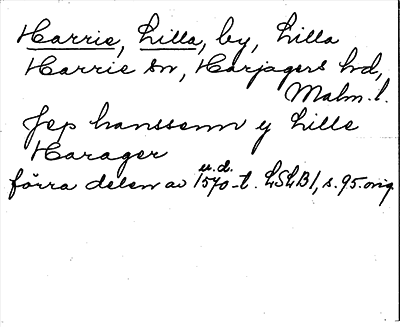 Harrie, Lilla, by, Lilla
Harrie sn, Harjagers hd,
Malm. l.
Jep hanssenn y Lille
Harager
u.d.
förra delen av 1570-t. LSLB1, s. 95. orig